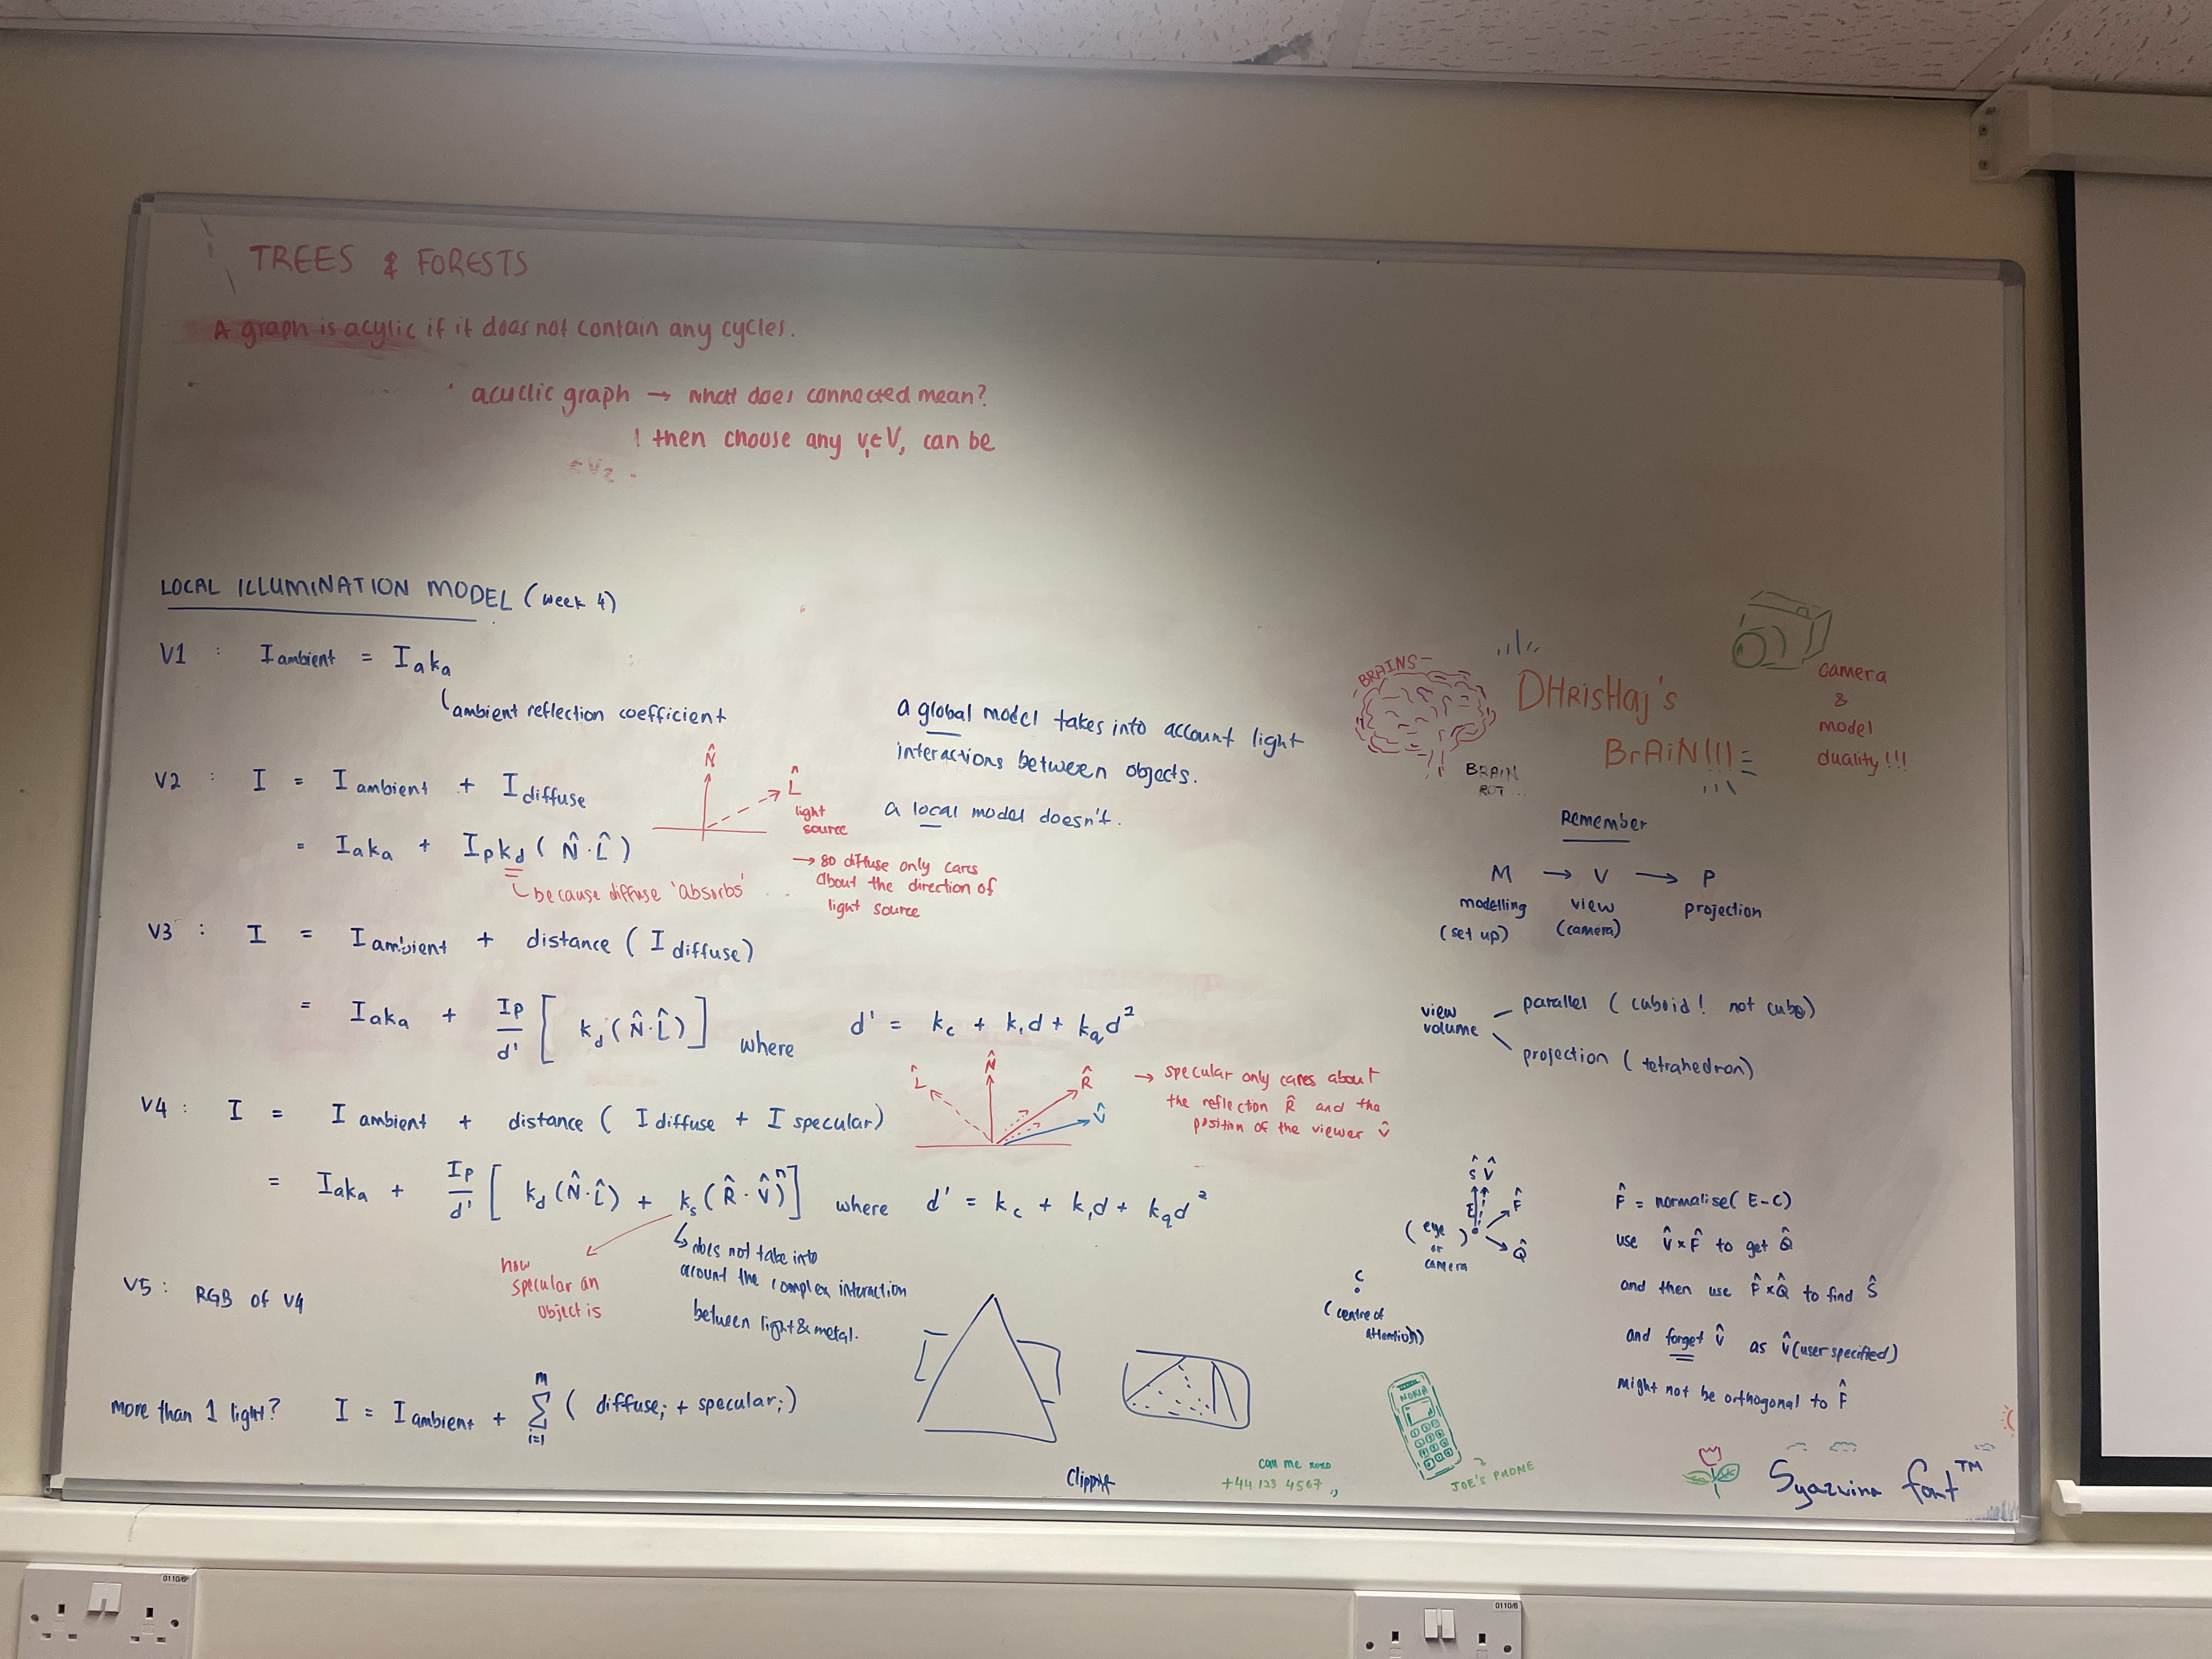 TREES & FORESTS
A graph is acylic if it does not contain any cycles.
acyclic graph → what does connected mean?
then choose any v₁∈V, can be
= V₂
LOCAL ILLUMINATION MODEL (week 4)
V1 : I ambient = Iₐkₐ
ambient reflection coefficient
V2 : I = I ambient + I diffuse
= Iₐkₐ + Iₚk_d ( N̂ · L̂ )
because diffuse 'absorbs'
N̂
L̂
light
source
→ so diffuse only cares
about the direction of
light source
a global model takes into account light
interactions between objects.
a local model doesn't.
V3 : I = I ambient + distance ( I diffuse )
= Iₐkₐ + Iₚ/d' [ k_d ( N̂ · L̂ ) ] where d' = k_c + k₁d + k_q d²
V4 : I = I ambient + distance ( I diffuse + I specular )
L̂ N̂ R̂ V̂
→ specular only cares about
the reflection R̂ and the
position of the viewer V̂
= Iₐkₐ + Iₚ/d' [ k_d ( N̂ · L̂ ) + k_s ( R̂ · V̂ )ⁿ ] where d' = k_c + k₁d + k_q d²
how
specular an
object is
does not take into
acount the complex interaction
between light & metal.
V5 : RGB of V4
more than 1 light? I = I ambient + Σ_{i=1}^{m} ( diffuseᵢ + specularᵢ )
BRAINS
BRAIN
ROT...
DHrisHaj's
BrAiN!!!
camera
&
model
duality!!!
Remember
M → V → P
modelling view projection
(set up) (camera)
view
volume
parallel ( cuboid! not cube )
projection ( tetrahedron )
Ŝ V̂
E F̂
( eye )
or
camera
Q̂
C
( centre of
attention )
F̂ = normalise( E-C )
use V̂ x F̂ to get Q̂
and then use F̂ x Q̂ to find Ŝ
and forget V̂ as V̂ (user specified)
might not be orthogonal to F̂
NOKIA
JOE'S PHONE
call me
+44 123 4567
Syazwina font™
0110/6
0110/6